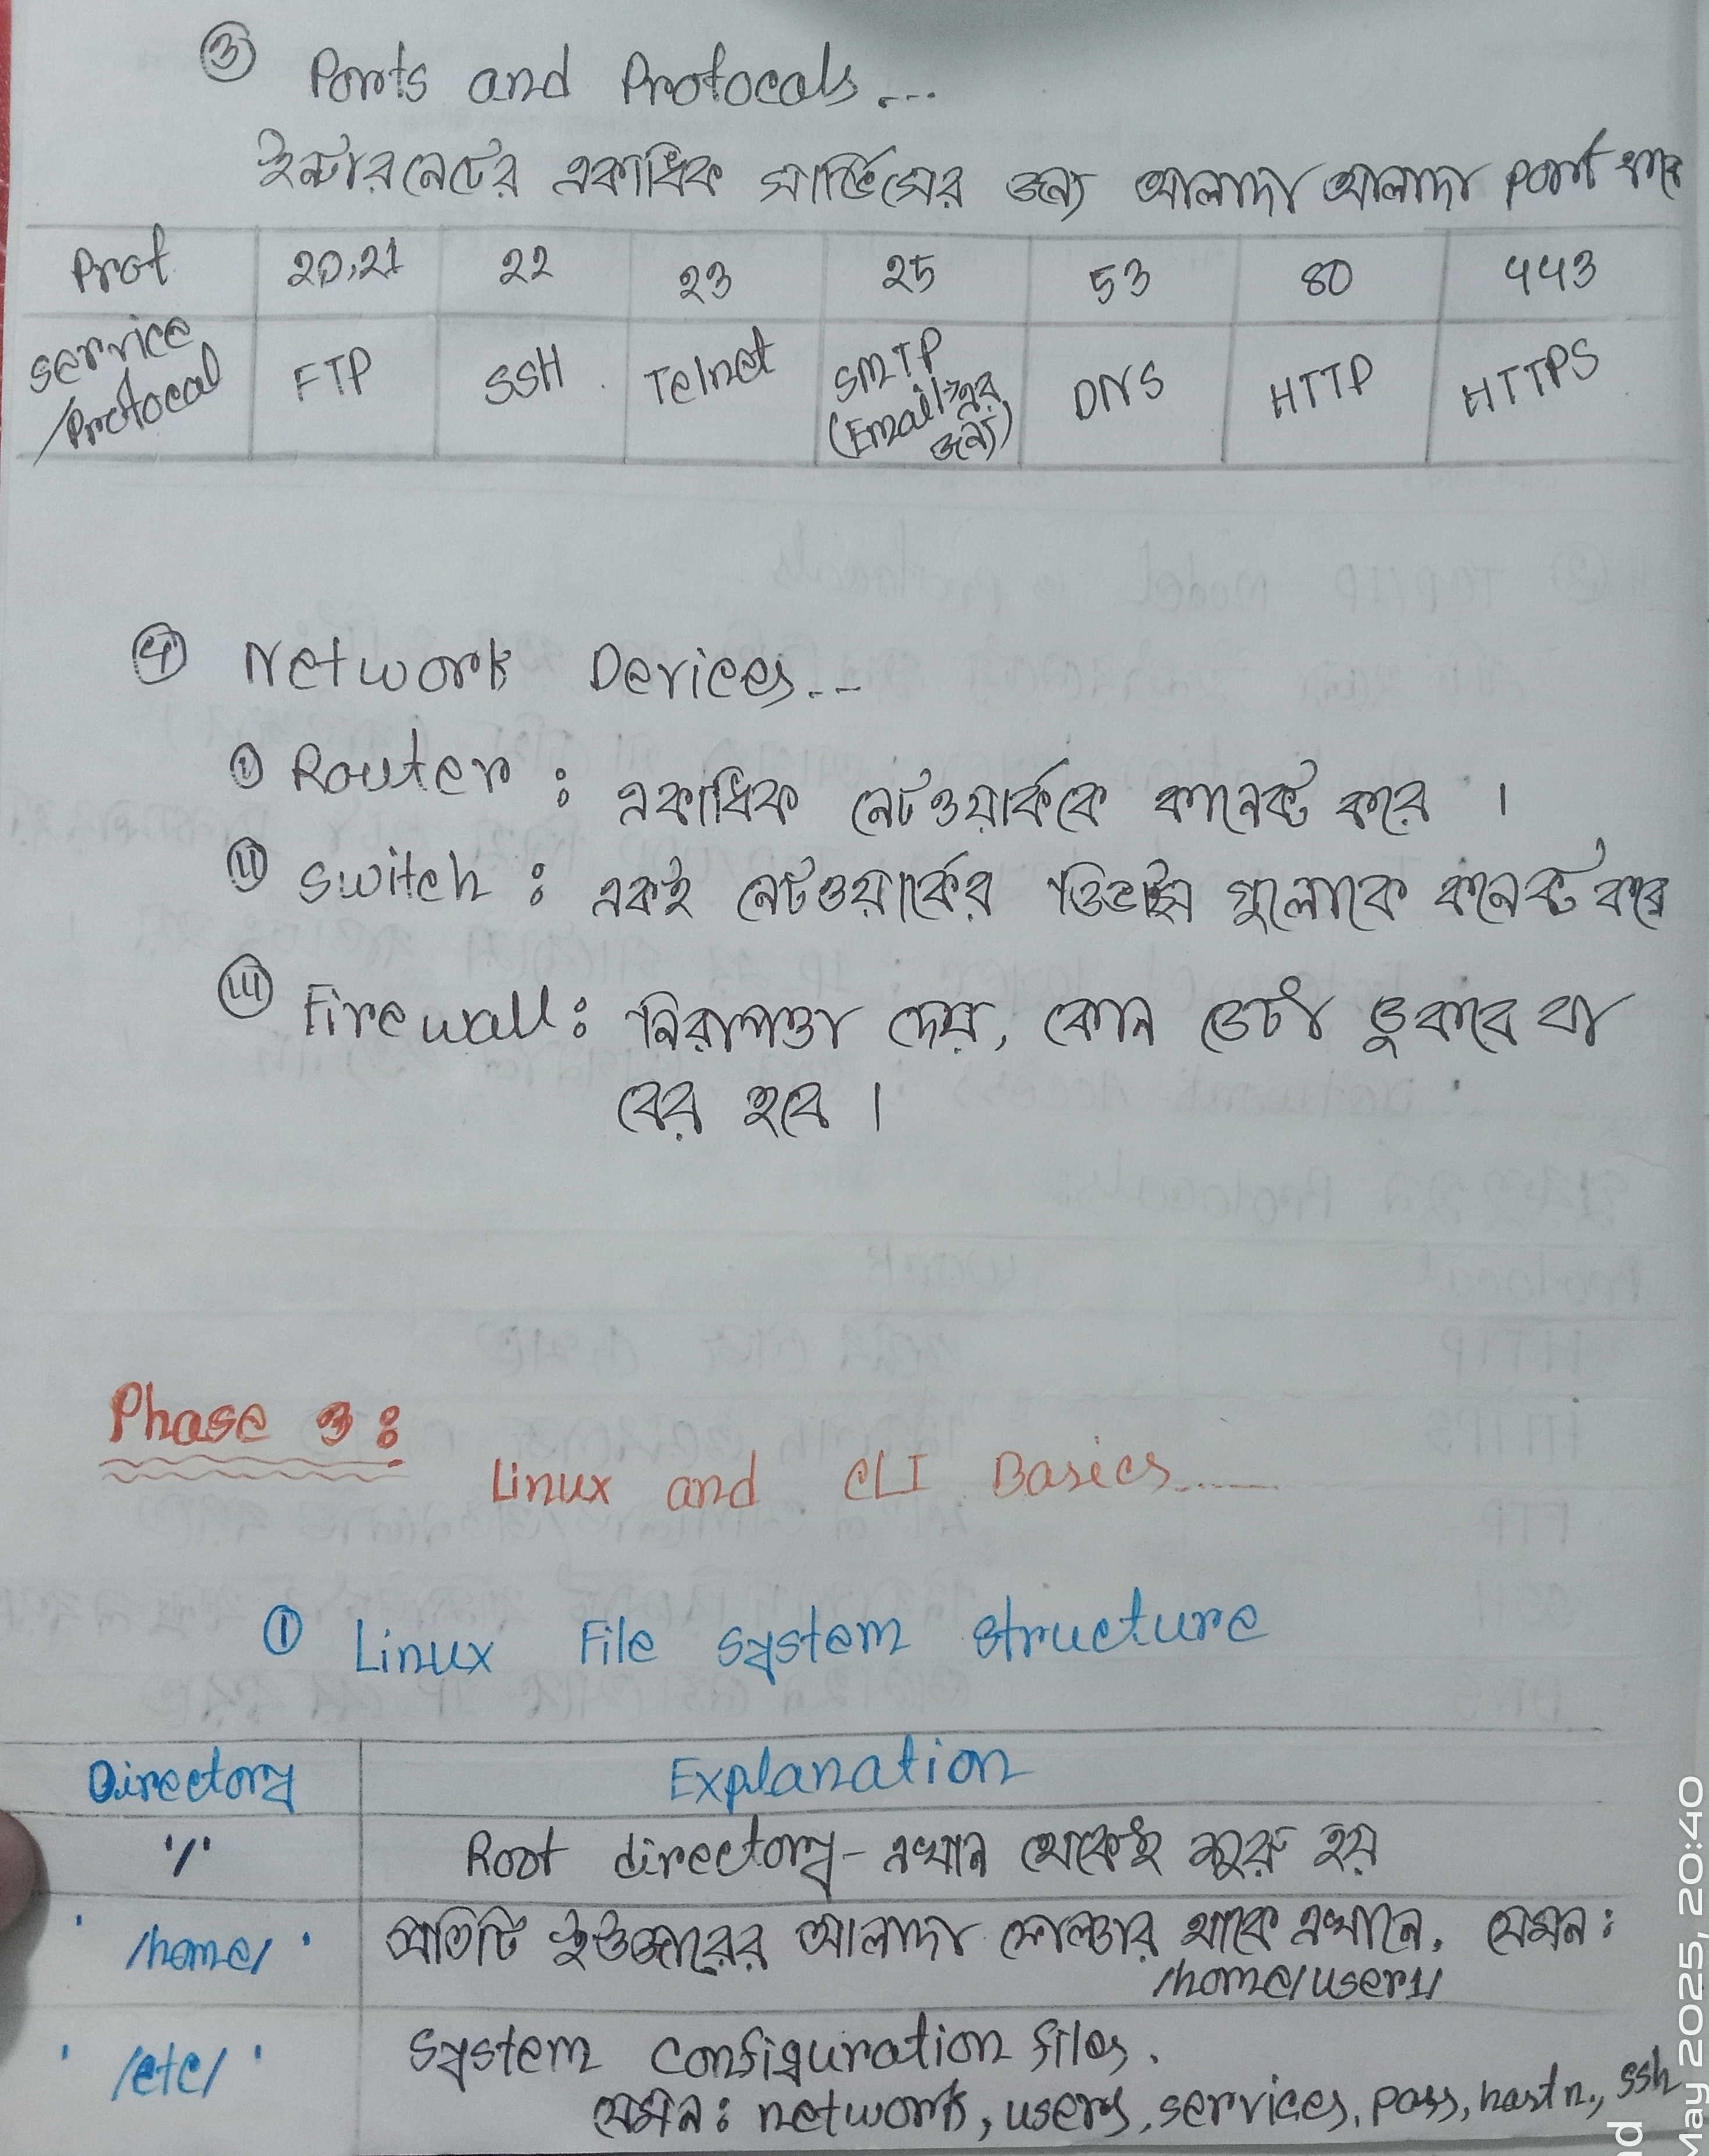 ③ Ports and Protocals...
ইন্টারনেটের একাধিক সার্ভিসের জন্য আলাদা আলাদা port থাকে
Prot 20,21 22 23 25 53 80 443
Service/Protocal FTP SSH Telnet SMTP (Email এর জন্য) DNS HTTP HTTPS
④ Network Devices...
① Router : একাধিক নেটওয়ার্ককে কানেক্ট করে ।
⑪ Switch : একই নেটওয়ার্কের ডিভাইস গুলোকে কনেক্ট করে
⑪⑪ Firewall : নিরাপত্তা দেয়, কোন ডেটা ঢুকবে বা
বের হবে ।
Phase 3 :
Linux and CLI Basics....
① Linux File System Structure
Directory Explanation
'/' Root directory - এখান থেকেই শুরু হয়
'/home/' প্রতিটি ইউজারের আলাদা ফোল্ডার থাকে এখানে, যেমন :
/home/user1/
'/etc/' System configuration files.
যেমন : network, users, services, pass, ssh
May 2025, 20:40